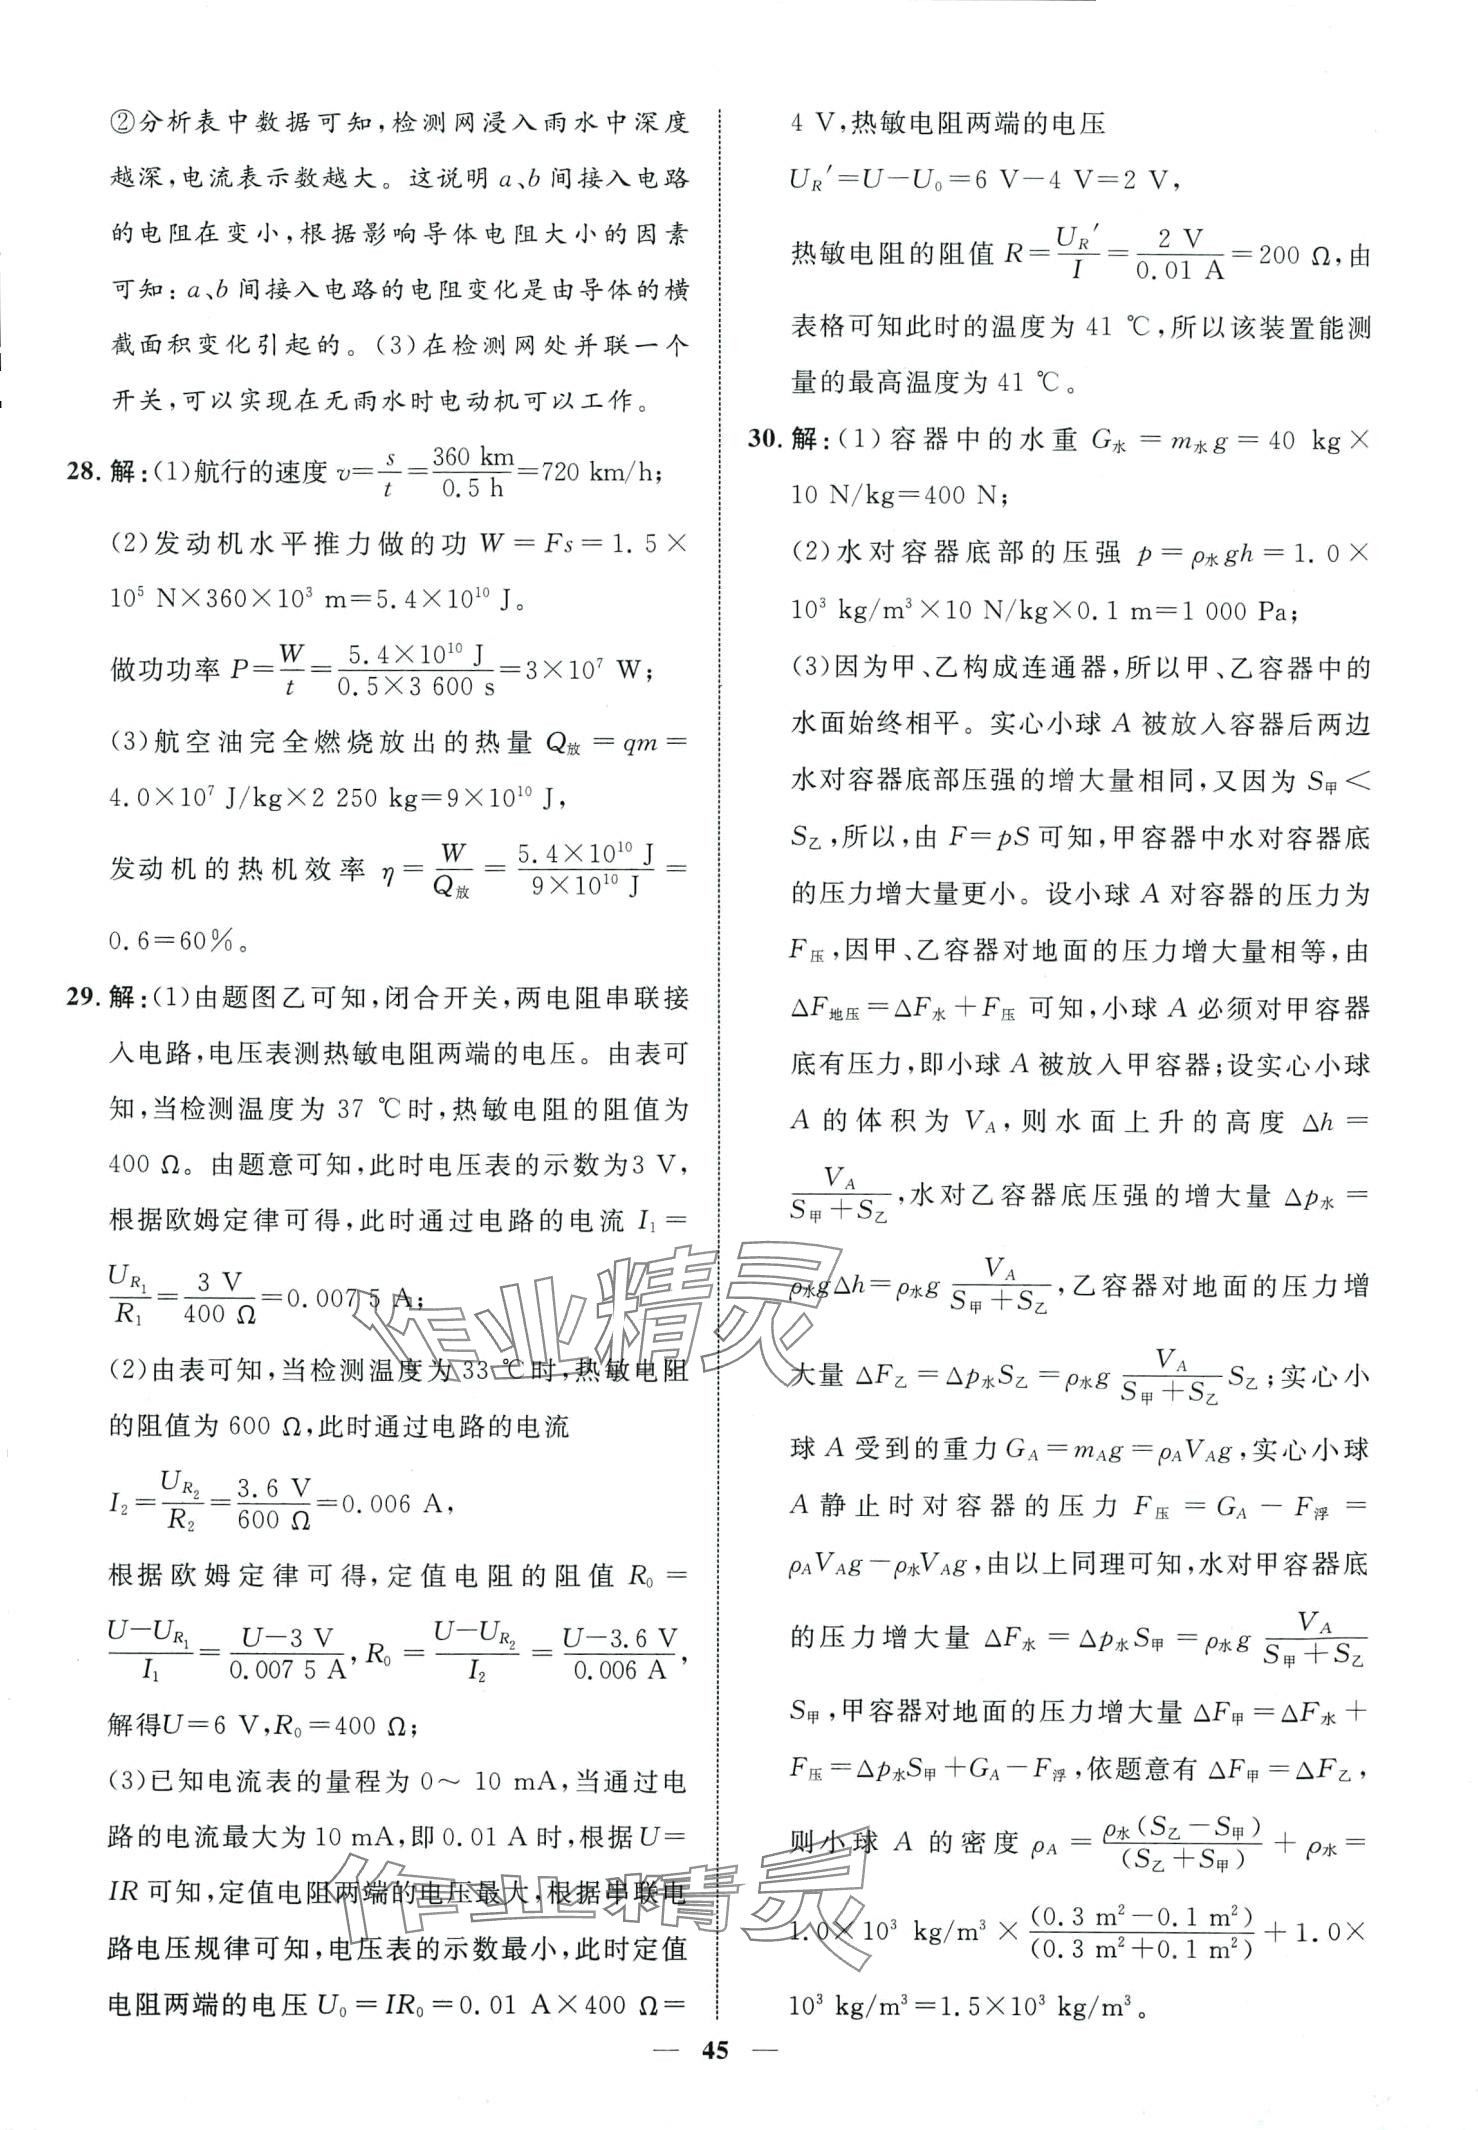 ②分析表中数据可知,检测网浸入雨水中深度
越深,电流表示数越大。这说明 a、b 间接入电路
的电阻在变小,根据影响导体电阻大小的因素
可知:a、b 间接入电路的电阻变化是由导体的横
截面积变化引起的。(3)在检测网处并联一个
开关,可以实现在无雨水时电动机可以工作。
28. 解:(1)航行的速度 v=s/t=360 km/0.5 h=720 km/h;
(2)发动机水平推力做的功 W=Fs=1.5×
10⁵ N×360×10³ m=5.4×10¹⁰ J。
做功功率 P=W/t=5.4×10¹⁰ J/0.5×3 600 s=3×10⁷ W;
(3)航空油完全燃烧放出的热量 Q放=qm=
4.0×10⁷ J/kg×2 250 kg=9×10¹⁰ J,
发动机的热机效率 η=W/Q放=5.4×10¹⁰ J/9×10¹⁰ J=
0.6=60%。
29. 解:(1)由题图乙可知,闭合开关,两电阻串联接
入电路,电压表测热敏电阻两端的电压。由表可
知,当检测温度为 37 ℃时,热敏电阻的阻值为
400 Ω。由题意可知,此时电压表的示数为3 V,
根据欧姆定律可得,此时通过电路的电流 I₁=
U_R₁/R₁=3 V/400 Ω=0.007 5 A;
(2)由表可知,当检测温度为 33 ℃时,热敏电阻
的阻值为 600 Ω,此时通过电路的电流
I₂=U_R₂/R₂=3.6 V/600 Ω=0.006 A,
根据欧姆定律可得,定值电阻的阻值 R₀=
U-U_R₁/I₁=U-3 V/0.007 5 A,R₀=U-U_R₂/I₂=U-3.6 V/0.006 A,
解得U=6 V,R₀=400 Ω;
(3)已知电流表的量程为 0～10 mA,当通过电
路的电流最大为 10 mA,即 0.01 A 时,根据 U=
IR 可知,定值电阻两端的电压最大,根据串联电
路电压规律可知,电压表的示数最小,此时定值
电阻两端的电压 U₀=IR₀=0.01 A×400 Ω=
4 V,热敏电阻两端的电压
U_R′=U-U₀=6 V-4 V=2 V,
热敏电阻的阻值 R=U_R′/I=2 V/0.01 A=200 Ω,由
表格可知此时的温度为 41 ℃,所以该装置能测
量的最高温度为 41 ℃。
30. 解:(1)容器中的水重 G水=m水g=40 kg×
10 N/kg=400 N;
(2)水对容器底部的压强 p=ρ水gh=1.0×
10³ kg/m³×10 N/kg×0.1 m=1 000 Pa;
(3)因为甲、乙构成连通器,所以甲、乙容器中的
水面始终相平。实心小球 A 被放入容器后两边
水对容器底部压强的增大量相同,又因为 S甲<
S乙,所以,由 F=pS 可知,甲容器中水对容器底
的压力增大量更小。设小球 A 对容器的压力为
F压,因甲、乙容器对地面的压力增大量相等,由
ΔF地压=ΔF水+F压 可知,小球 A 必须对甲容器
底有压力,即小球 A 被放入甲容器;设实心小球
A 的体积为 V_A,则水面上升的高度 Δh=
V_A/S甲+S乙,水对乙容器底压强的增大量 Δp水=
ρ水gΔh=ρ水g V_A/S甲+S乙,乙容器对地面的压力增
大量 ΔF乙=Δp水S乙=ρ水g V_A/S甲+S乙 S乙;实心小
球 A 受到的重力 G_A=m_Ag=ρ_AV_Ag,实心小球
A 静止时对容器的压力 F压=G_A-F浮=
ρ_AV_Ag-ρ水V_Ag,由以上同理可知,水对甲容器底
的压力增大量 ΔF水=Δp水S甲=ρ水g V_A/S甲+S乙
S甲,甲容器对地面的压力增大量 ΔF甲=ΔF水+
F压=Δp水S甲+G_A-F浮,依题意有 ΔF甲=ΔF乙,
则小球 A 的密度 ρ_A=ρ水(S乙-S甲)/(S乙+S甲)+ρ水=
1.0×10³ kg/m³×(0.3 m²-0.1 m²)/(0.3 m²+0.1 m²)+1.0×
10³ kg/m³=1.5×10³ kg/m³。
— 45 —
作业精灵
作业精灵